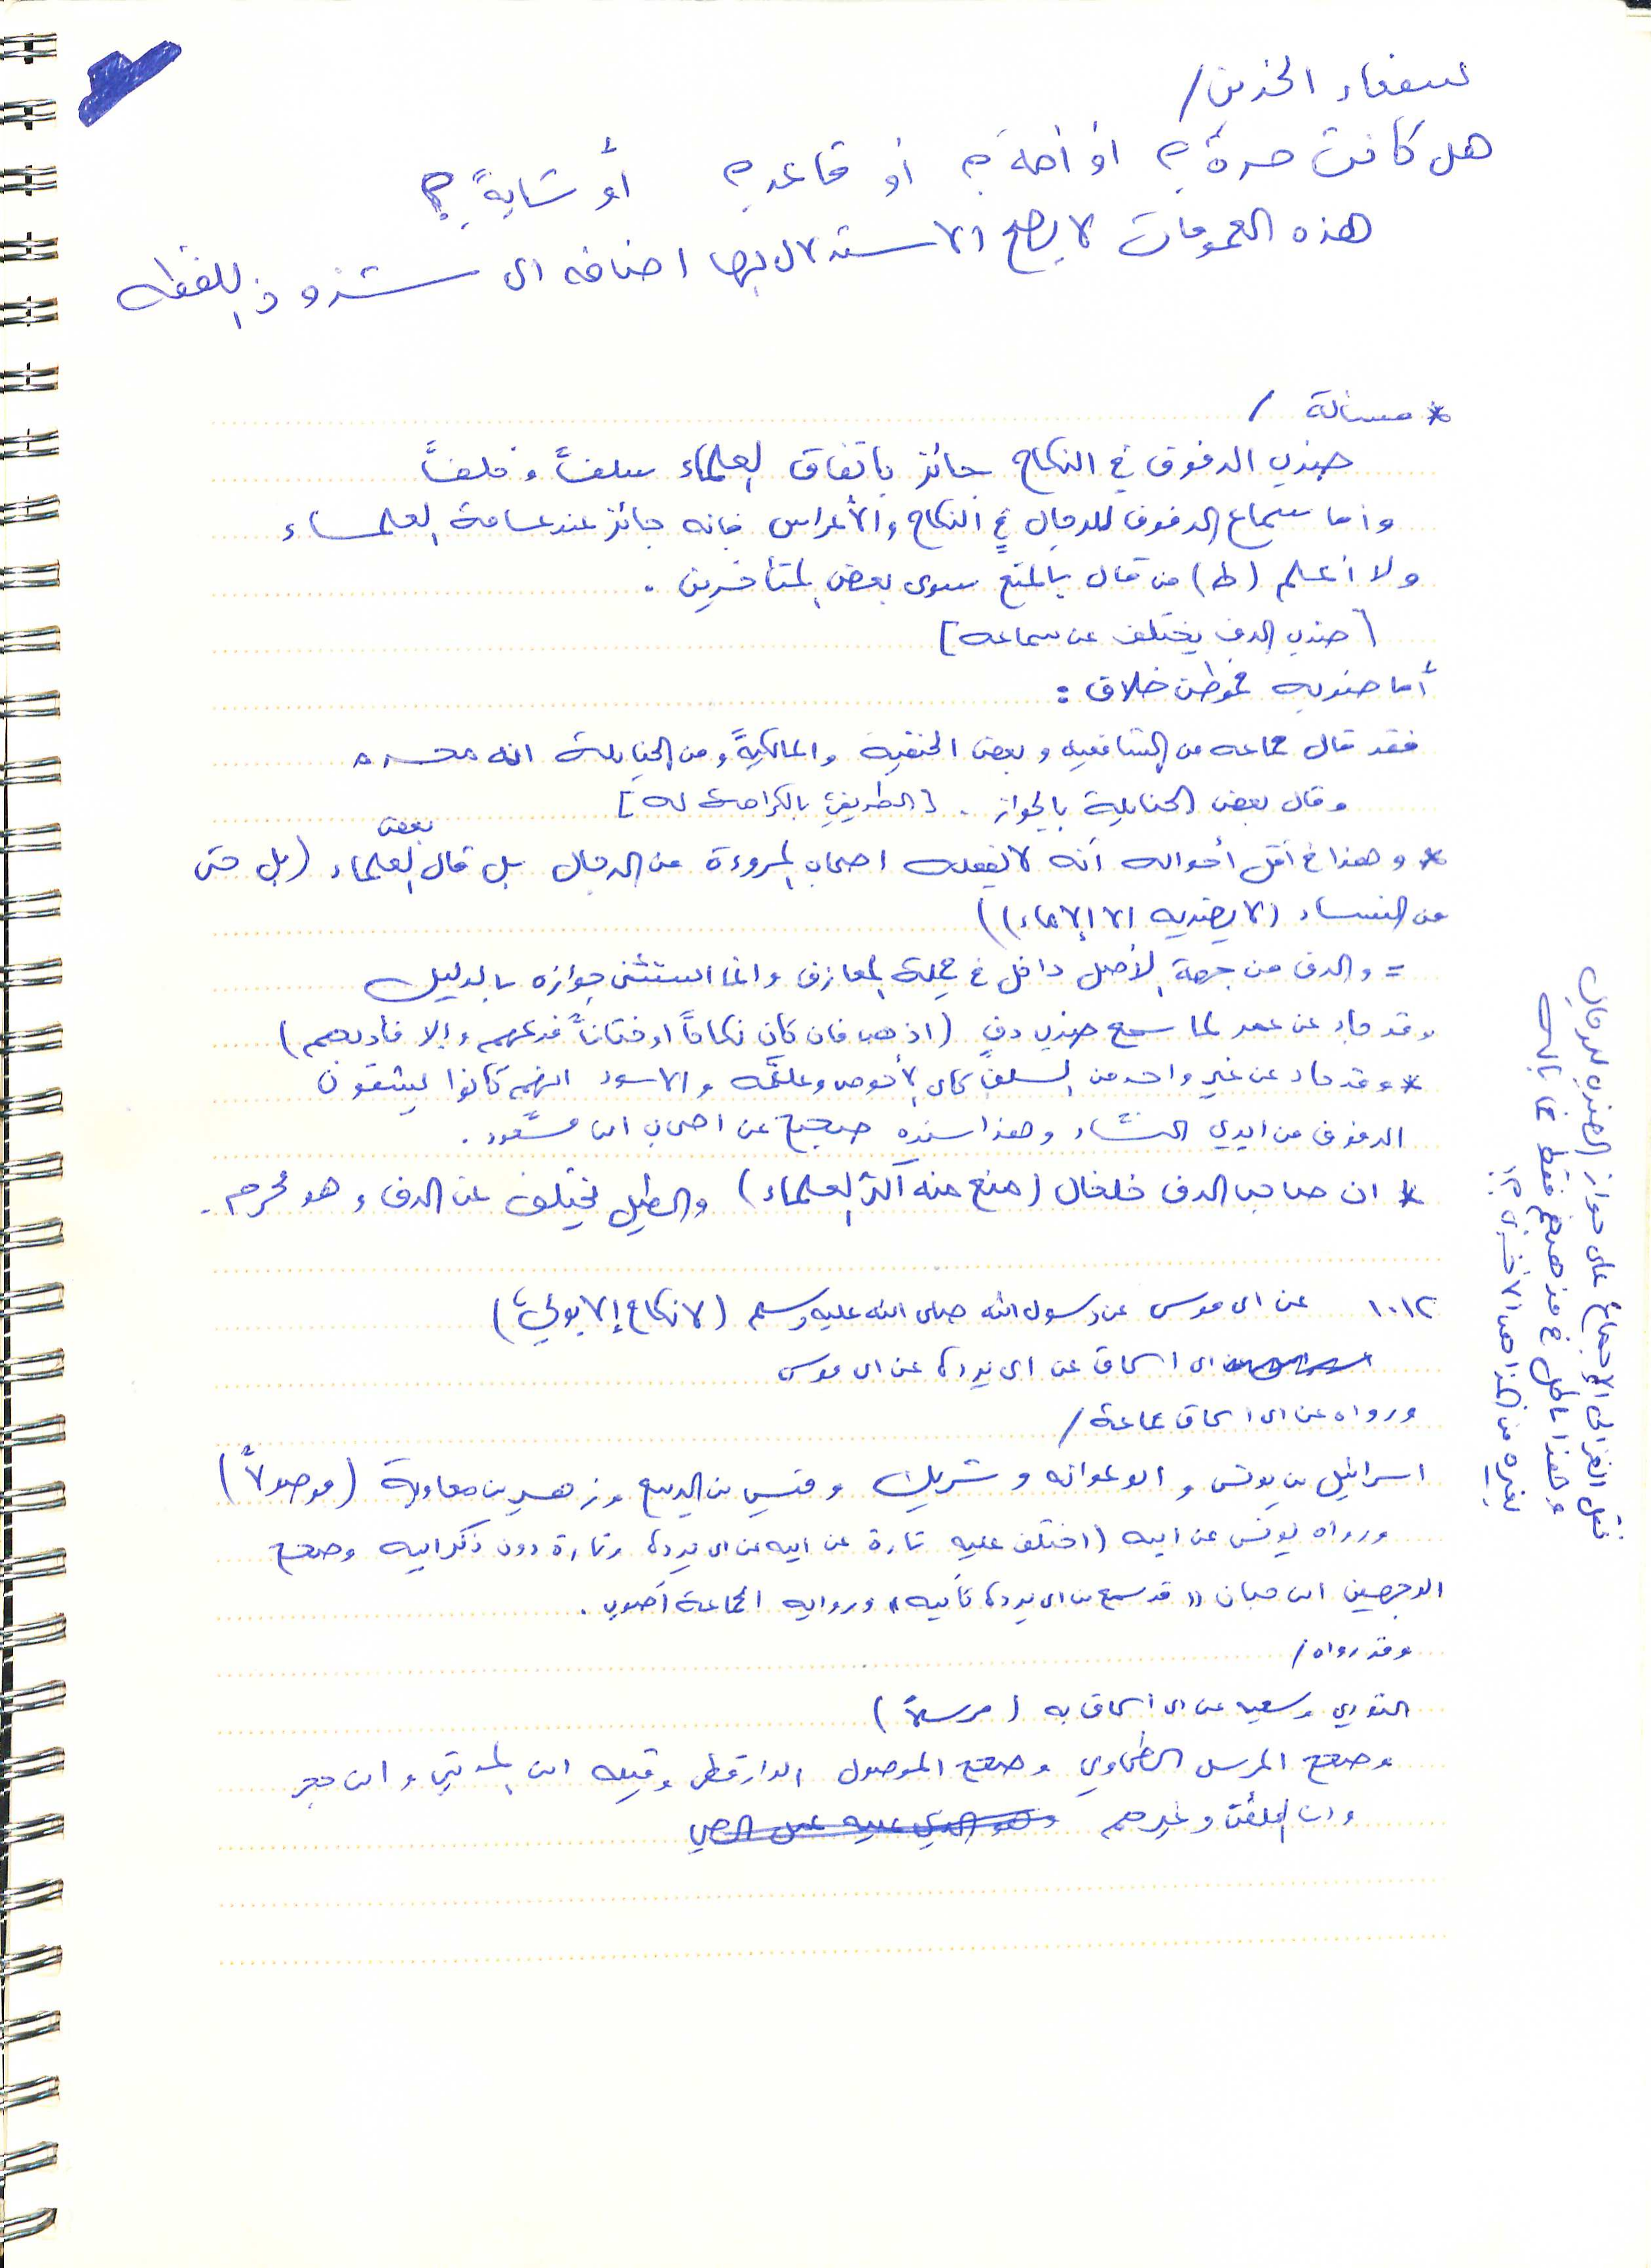 سفعاء الخدين /
هل كانت حرة؟ او أمة؟ أو قاعد؟ أو شابةً؟
هذه العمومات لا يصلح الاستدلال بها اضافه الى شذوذ اللفظه
* مسألة /
ضرب الدفوف في النكاح جائز باتفاق العلماء سلفاً وخلفاً
وأما سماع الدفوف للرجال في النكاح والأعراس فانه جائز عند عامة العلماء
ولا أعلم (ط) من قال بالمنع سوى بعض المتأخرين .
[ ضرب الدف يختلف عن سماعه ]
أما ضربه فموطن خلاف :
فقد قال جماعه من الشافعيه وبعض الحنفية والمالكيةً ومن الحنابلة انه محرم
وقال بعض الحنابلة بالجواز . [ الطريفي بالكراهة له ]
* وهذا في أقل أحواله أنه لا يفعله اصحاب المروءة من الرجال بل قال بعض العلماء (بل حتى
من النساء (لا يضربه الا الإماء))
= والدف من جهة الأصل داخل في جملة المعازف وانما استثني جوازه بالدليل
وقد جاء عن عمر لما سمع ضرب دفٍ (اذهب فان كان نكاحاً او ختاناً فدعهم وإلا فاديهم)
* وقد جاء عن غير واحد من السلف كابي الأحوص وعلقمه والاسود انهم كانوا يشقون
الدفوف من ايدي النساء وهذا سنده صحيح عن اصحاب ابن مسعود .
* ان صاحب الدف خلخال (منع منه أكثر العلماء) والطبل يختلف عن الدف وهو محرم .
١٠١٢ عن ابي موسى عن رسول الله صلى الله عليه وسلم (لا نكاح إلا بولي)
ابي اسحاق عن ابي بردة عن ابي موسى
ورواه عن ابي اسحاق جماعة /
اسرائيل بن يونس و ابو عوانه و شريك و قيس بن الربيع و زهير بن معاوية (موصولاً)
ورواه يونس عن ابيه (اختلف عليه تارة عن ابيه عن ابي بردة وتارة دون ذكر ابيه وصحح
الوجهين ابن حبان "قد سمع من ابي بردة كأبيه" ورواية الجماعة أصوب .
وقد رواه /
الثوري وسعيد عن ابي اسحاق به (مرسلاً)
وصحح المرسل الطحاوي وصحح الموصول الدارقطني وقبله ابن المديني و ابن حجر
وابن الملقن وغيرهم
نقل الغزالي الإجماع على جواز الضرب للرجال
وهذا باطل في مذهبهم فقط فما بالك
بغيره من المذاهب الأخرى